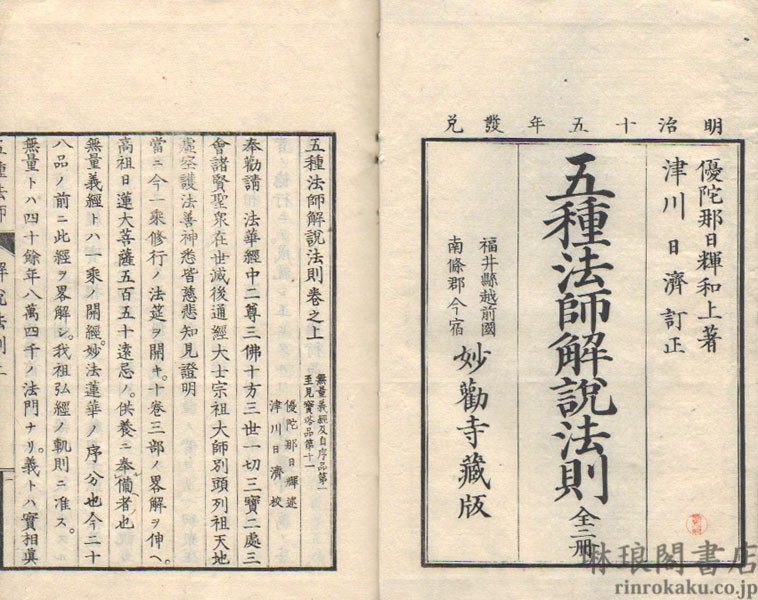 明治十五年發兌
優陀那日輝和上著
津川日濟訂正
五種法師解說法則 全二冊
福井縣越前國
南條郡今宿
妙勸寺藏版
五種法師解說法則卷之上
無量義經及自序品第一
至見寶塔品第十一
優陀那日輝述
津川日濟校
奉勸請法華經中二尊三佛十方三世一切三寶二處三
會諸賢聖衆在世滅後通經大士宗祖大師別頭列祖天地
虛空護法善神悉皆慈悲知見證明
當ニ今一乘修行ノ法筵ヲ開キ。十卷三部ノ畧解ヲ伸ヘ。
高祖日蓮大菩薩五百五十遠忌ノ。供養ニ奉備者也
無量義經トハ一乘ノ開經。妙法蓮華ノ序分也今二十
八品ノ前ニ此經ヲ畧解シ。我祖弘經ノ軌則ニ准ス。
無量トハ四十餘年八萬四千ノ法門ナリ。義トハ實相眞
五種法師解說法則上
琳琅閣書店
rinrokaku.co.jp